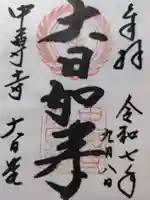 奉拝
令和七年
九月八日
大日如来
中尊寺 大日堂